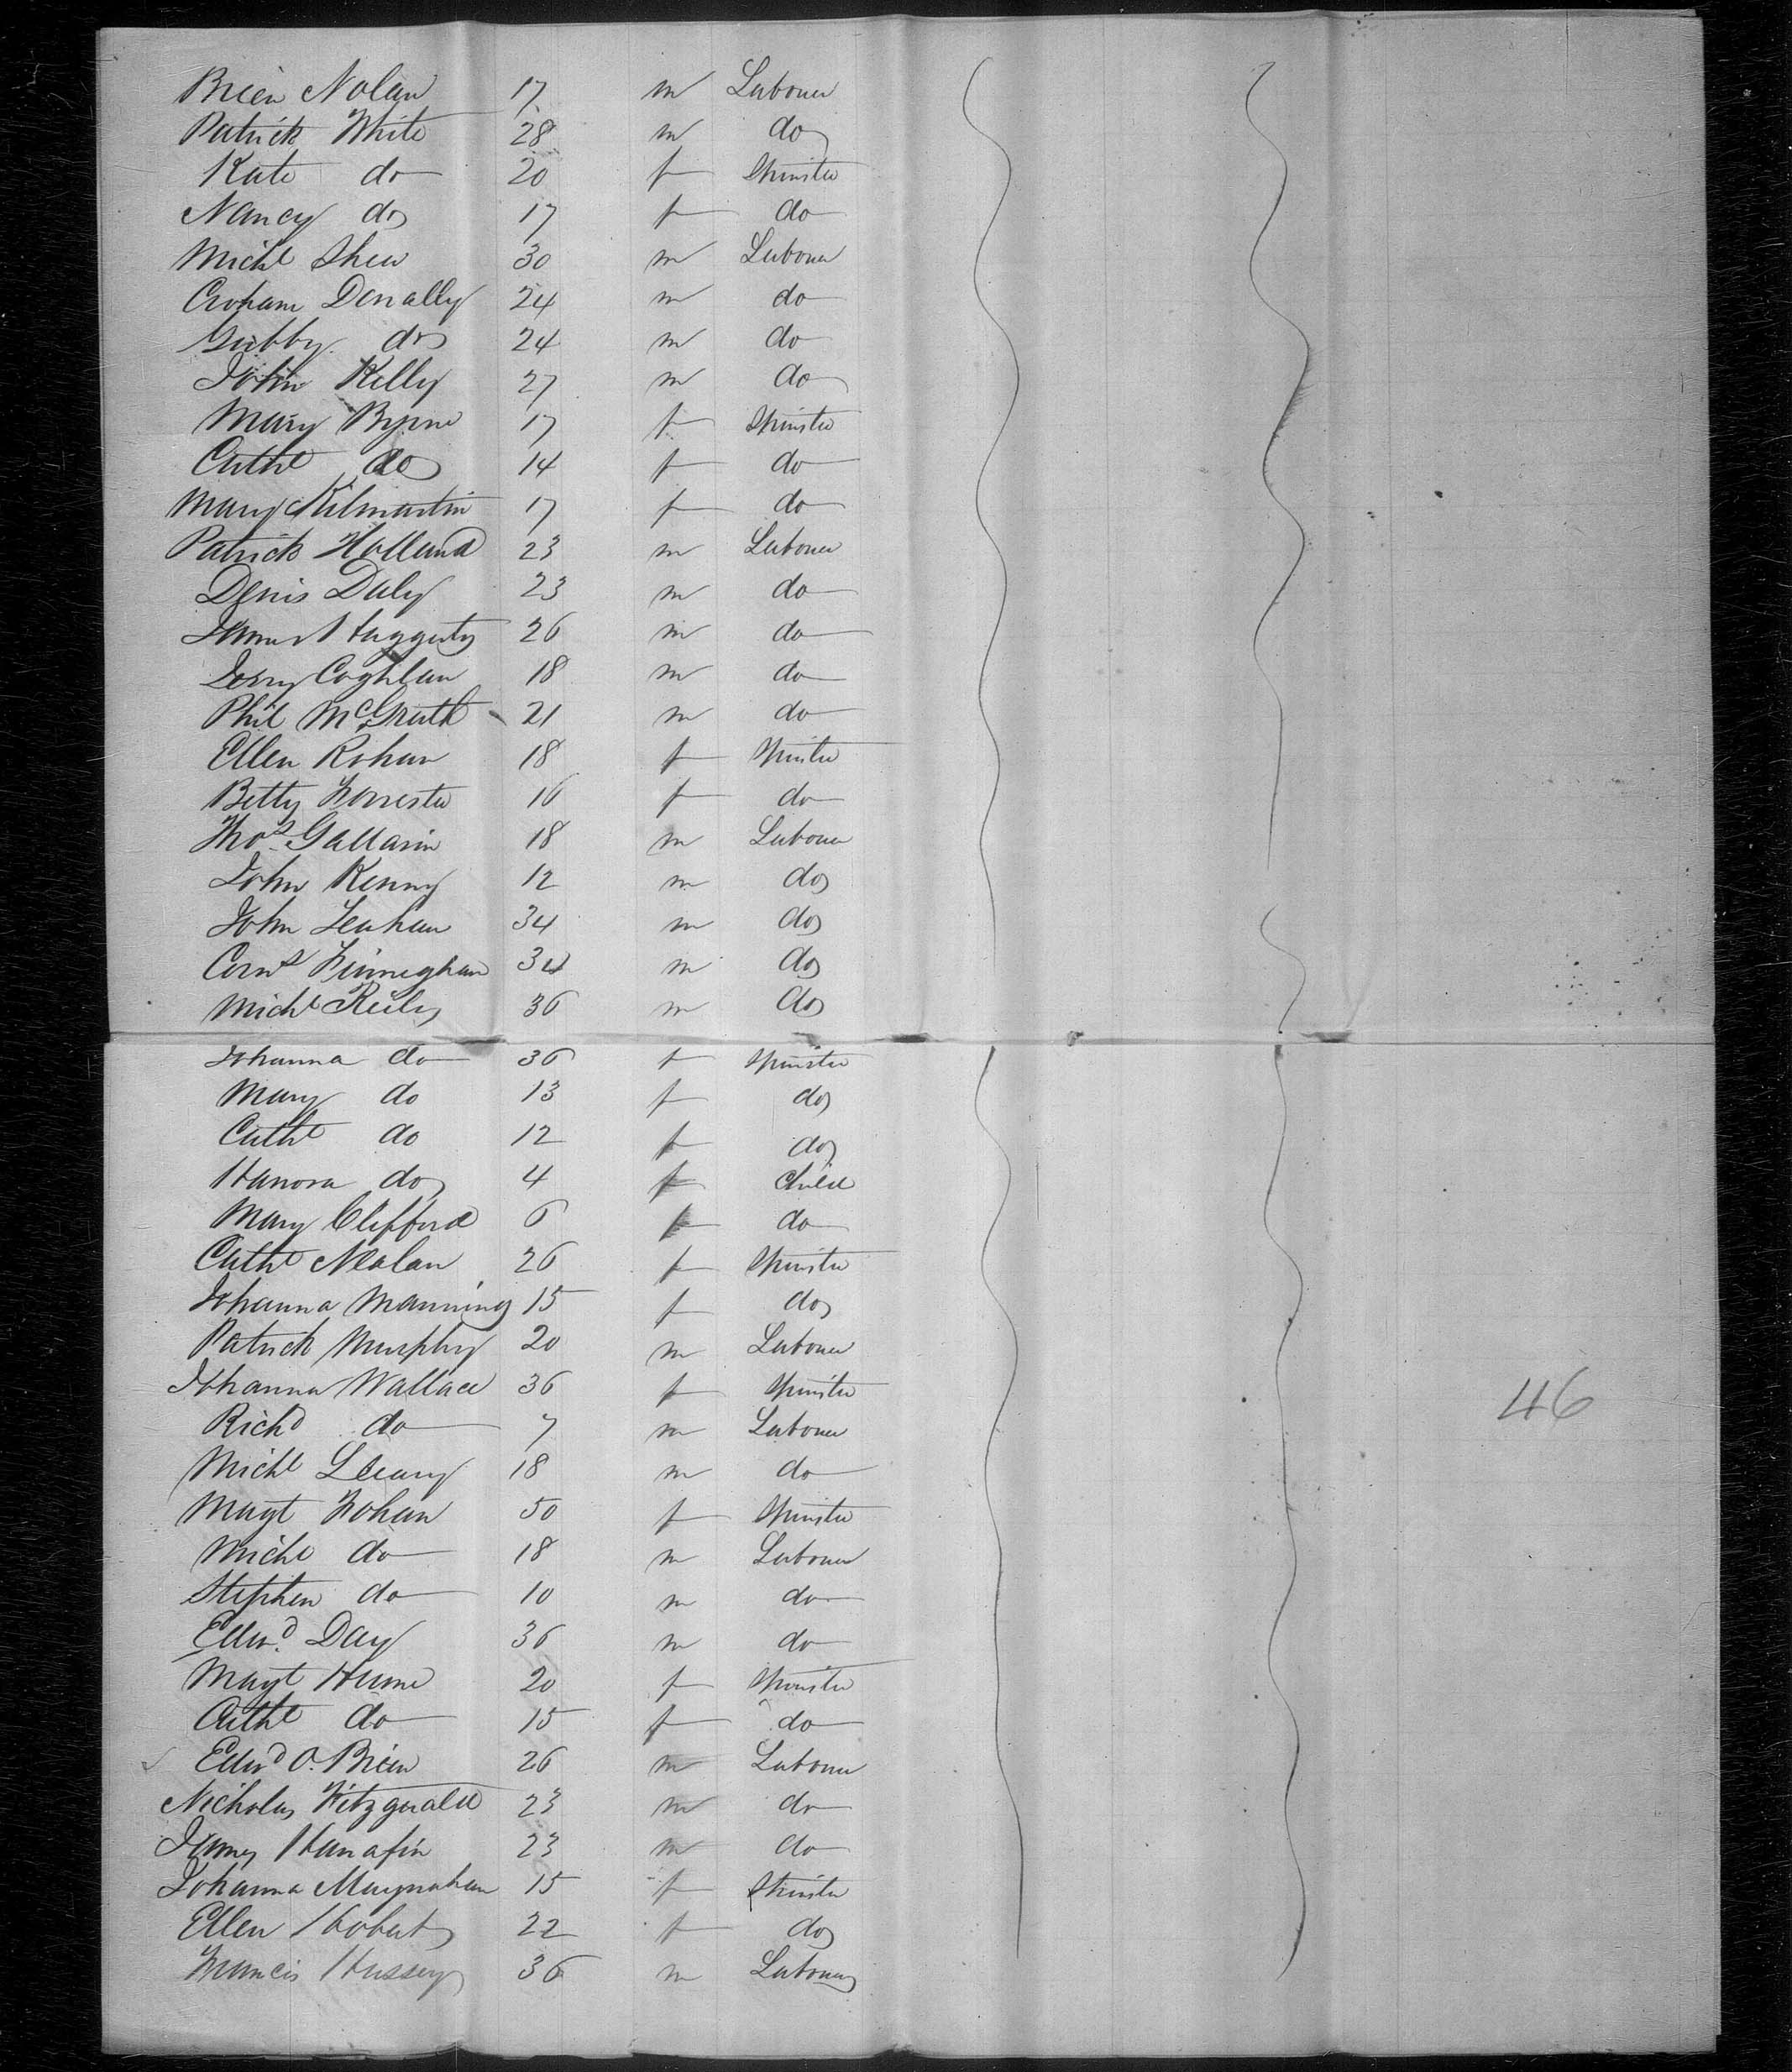 Brien Nolan 17 m Labourer
Patrick White 28 m do
Kate do 20 f Spinster
Nancy do 17 f do
Michl Shea 30 m Labourer
Donally 24 m do
do 24 m do
John Kelly 27 m do
Mary Byrne 17 f Spinster
Cathe do 14 f do
Mary Kilmartin 17 f do
Patrick Holland 23 m Labourer
Denis Daly 23 m do
James Haggerty 26 m do
Jerry Coghlan 18 m do
Phil McGrath 21 m do
Ellen Rohan 18 f Spinster
Betty Forrester 16 f do
Thos Gallavin 18 m Labourer
John Kenny 12 m do
John Leahan 34 m do
Corns Finneghan 34 m do
Michl Reily 36 m do
Johanna do 36 f Spinster
Mary do 13 f do
Cathe do 12 f do
Hanora do 4 f Child
Mary Clifford 6 f do
Cathe Nealan 26 f Spinster
Johanna Manning 15 f do
Patrick Murphy 20 m Labourer
Johanna Wallace 36 f Spinster
Richd do 7 m Labourer
46
Michl Leary 18 m do
Magt Fohan 50 f Spinster
Michl do 18 m Labourer
Stephen do 10 m do
Edwd Day 36 m do
Magt Hume 20 f Spinster
Cathe do 15 f do
Edwd O.Brien 26 m Labourer
Nicholas Fitzgerald 23 m do
James Hanafin 23 m do
Johanna Maynahan 15 f Spinster
Ellen Hobert 22 f do
Francis Hussey 36 m Labourer